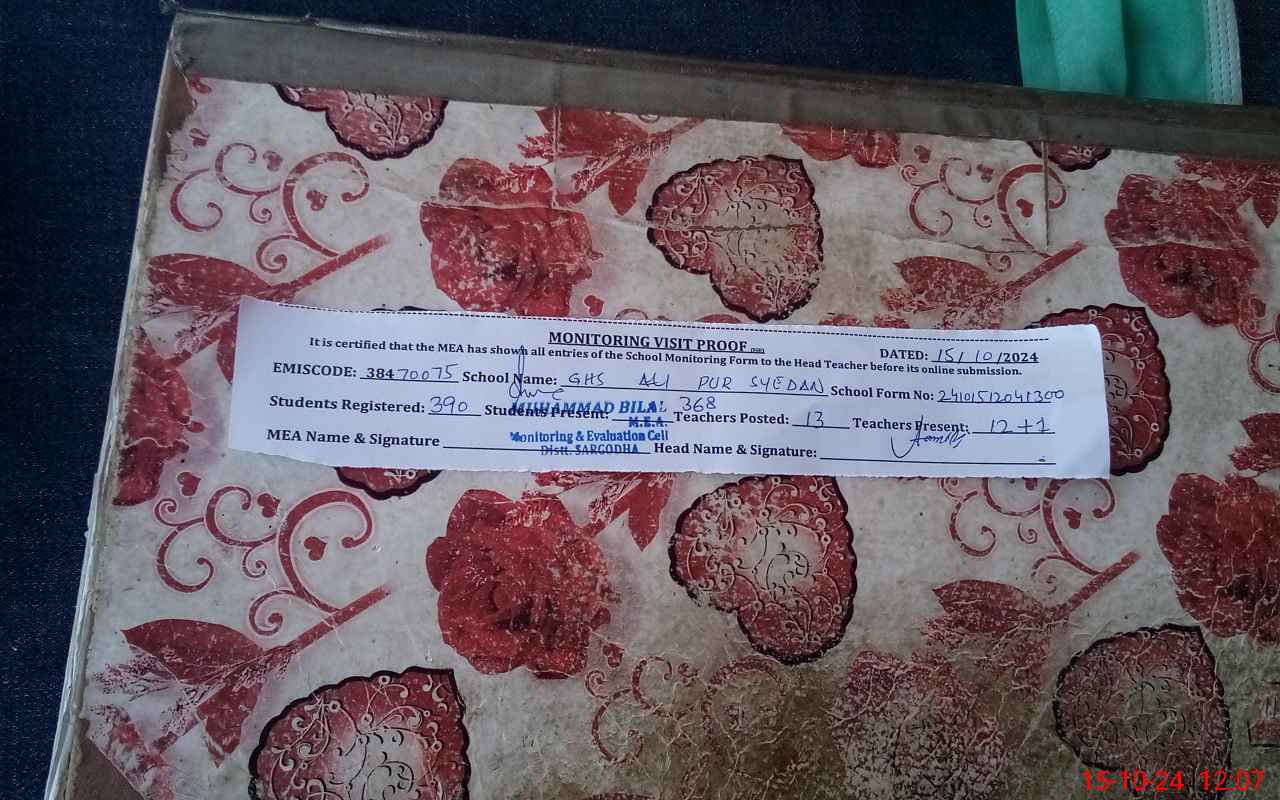 MONITORING VISIT PROOF
DATED: 15/10/2024
It is certified that the MEA has shown all entries of the School Monitoring Form to the Head Teacher before its online submission.
EMISCODE: 38470075 School Name: GHS ALI PUR SYEDAN School Form No: 24101512041300
Students Registered: 390 Students Present: 368 Teachers Posted: 13 Teachers Present: 12+1
MUHAMMAD BILAL
M.E.A.
Monitoring & Evaluation Cell
Distt. SARGODHA
MEA Name & Signature Head Name & Signature:
15-10-24 12:07